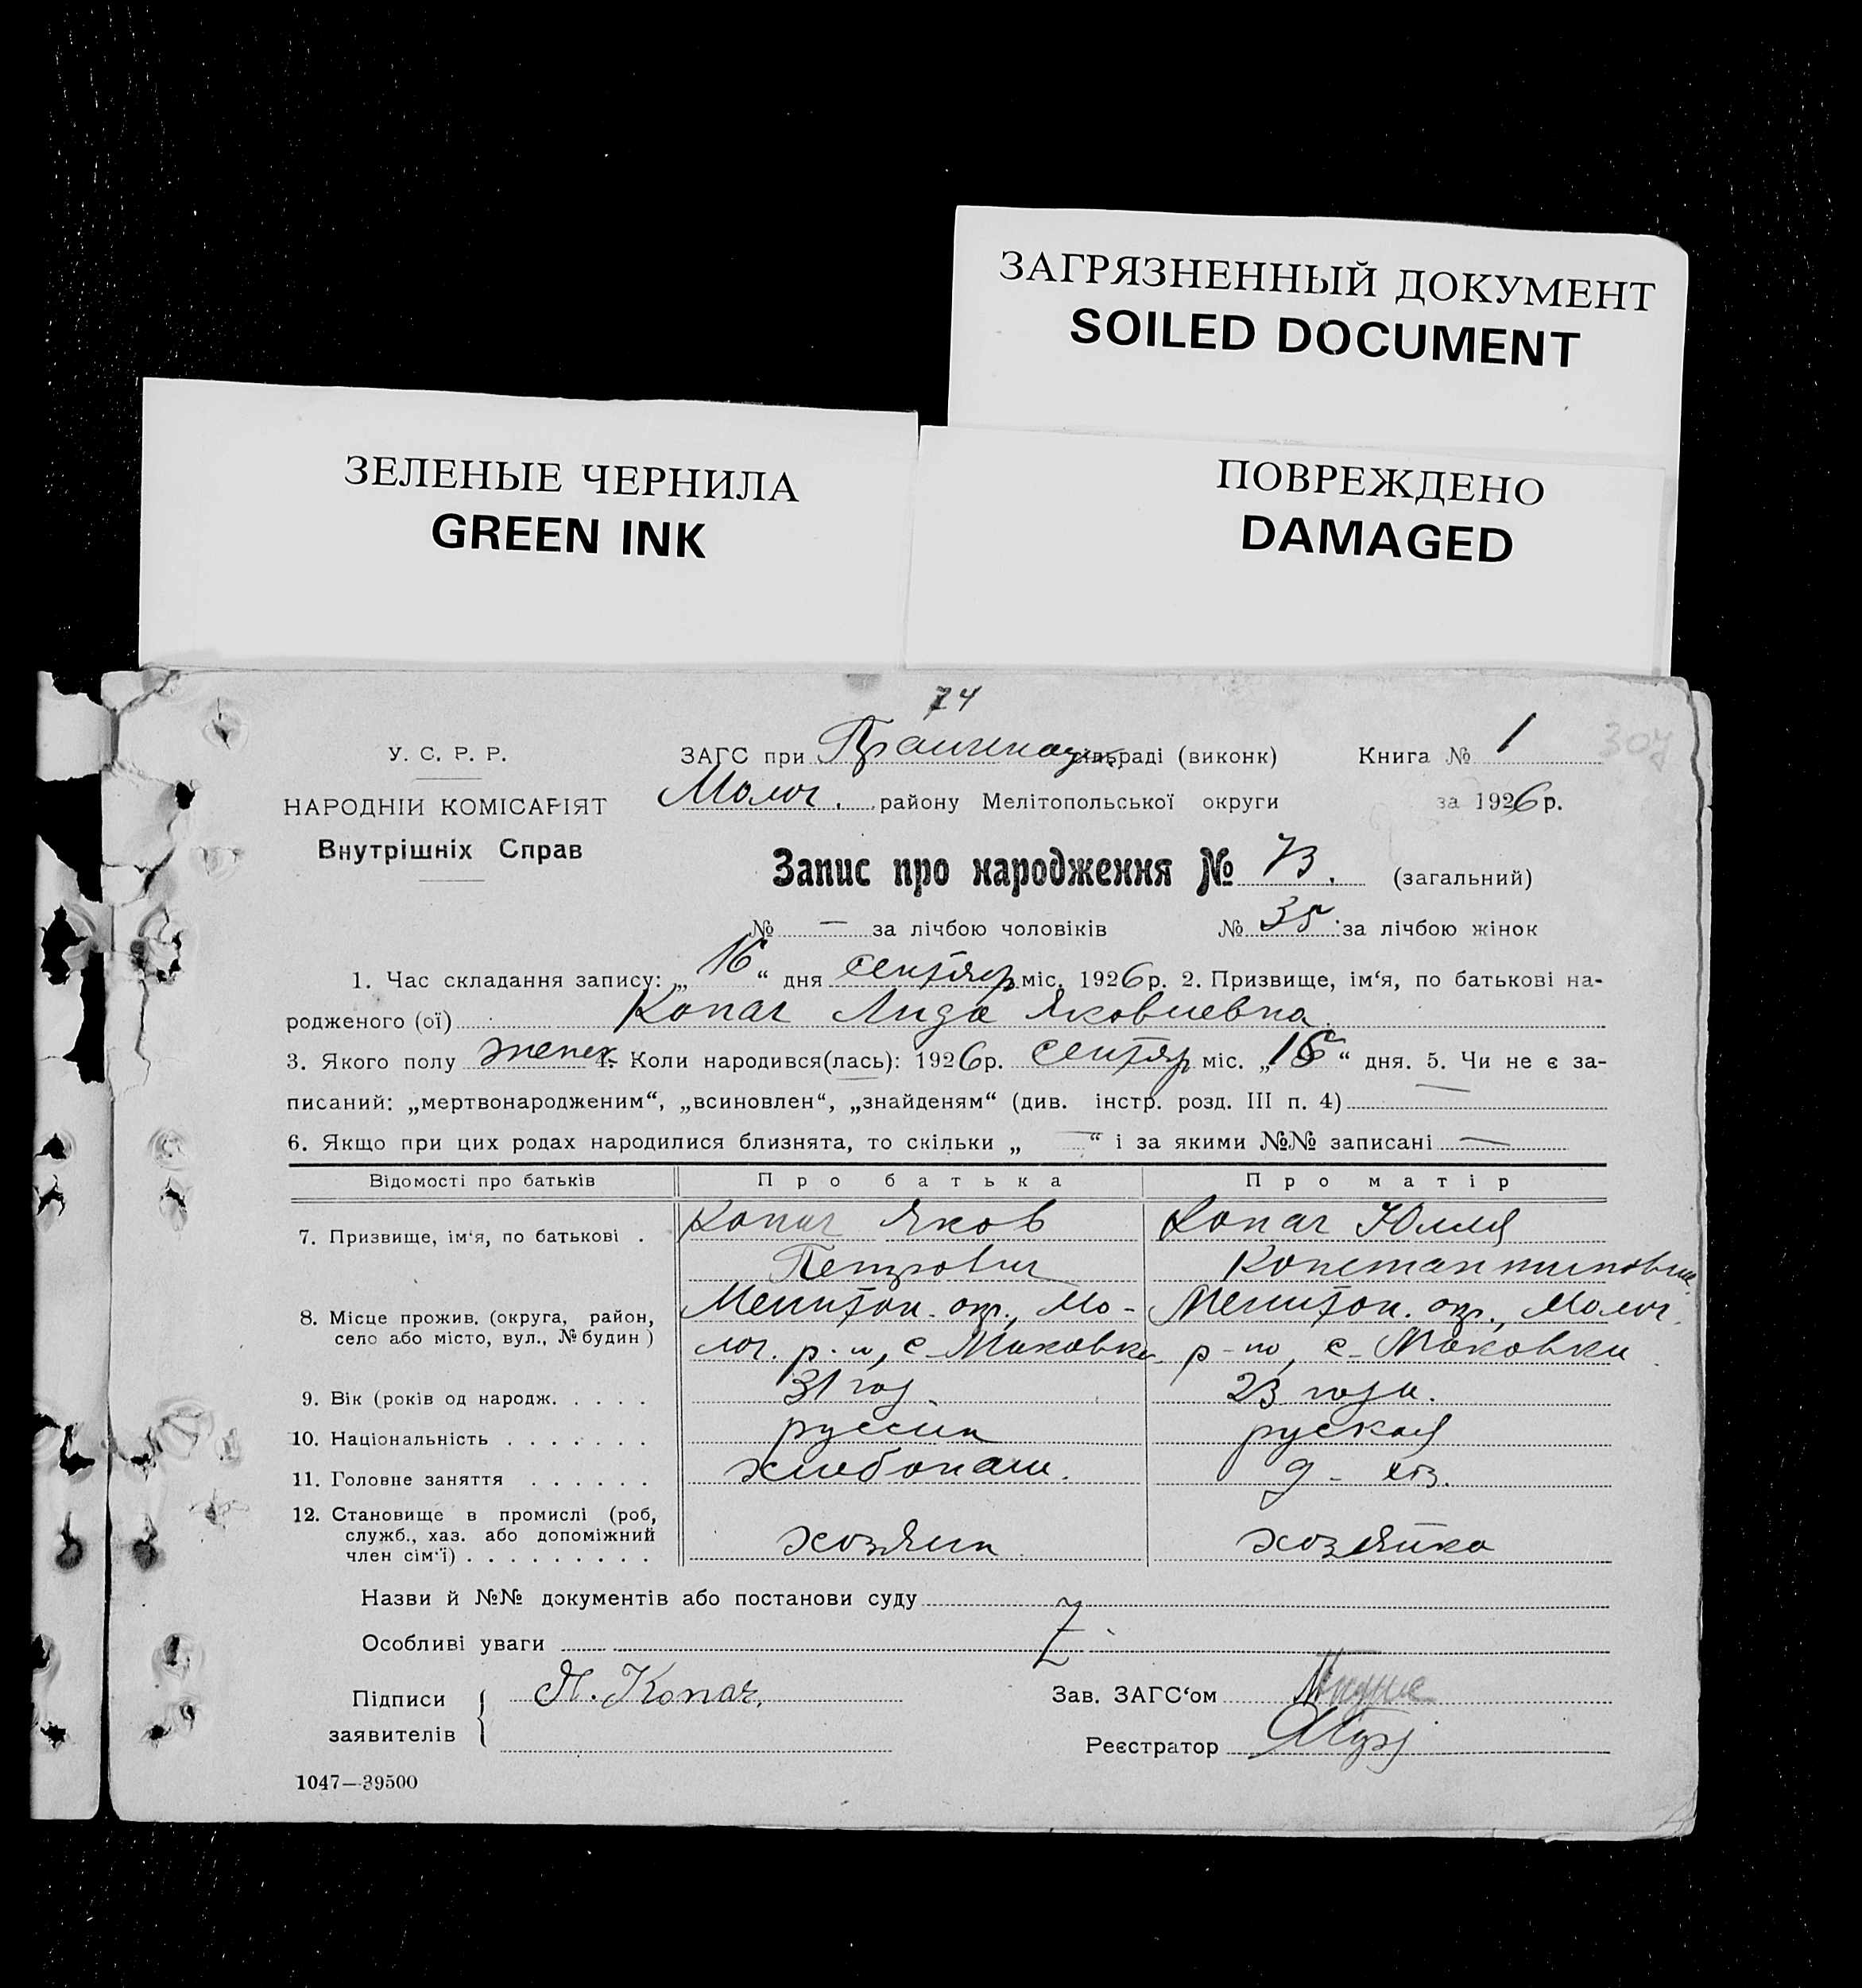 ЗАГРЯЗНЕННЫЙ ДОКУМЕНТ
SOILED DOCUMENT
ЗЕЛЕНЫЕ ЧЕРНИЛА
GREEN INK
ПОВРЕЖДЕНО
DAMAGED
74
307
У. С. Р. Р.
НАРОДНІЙ КОМІСАРІЯТ
Внутрішніх Справ
ЗАГС при сільраді (виконк) Книга № 1
Молоч. району Мелітопольської округи за 1926 р.
Запис про народження № 73. (загальний)
№ — за лічбою чоловіків № 35 за лічбою жінок
1. Час складання запису: „16“ дня сентябр міс. 1926 р. 2. Призвище, ім‘я, по батькові на-
родженого (ої) Копач Лида Яковлевна
3. Якого полу женск 4. Коли народився(лась): 1926 р. сентяр міс. „16“ дня. 5. Чи не є за-
писаний: „мертвонародженим“, „всиновлен“, „знайденям“ (див. інстр. розд. III п. 4) —
6. Якщо при цих родах народилися близнята, то скільки „—“ і за якими №№ записані —
Відомості про батьків Про батька Про матір
7. Призвище, ім‘я, по батькові . Копач Яков Петрович Копач Юлия Константиновна
8. Місце прожив. (округа, район, село або місто, вул., № будин) Мелитоп. окр., Мо-лоч. р-н, с. Маковка Мелитоп. окр., Молоч. р-но, с. Маковка
9. Вік (років од народж. . . . . 31 год 23 года.
10. Національність . . . . . . . русский руская
11. Головне заняття . . . . . . хлебопаш. д- хоз.
12. Становище в промислі (роб, служб., хаз. або допоміжний член сім‘ї) . . . . . . . . . хозяин хозяйка
Назви й №№ документів або постанови суду
Особливі уваги
Підписи заявителів Я. Копач, Зав. ЗАГС‘ом
Реєстратор
1047—39500